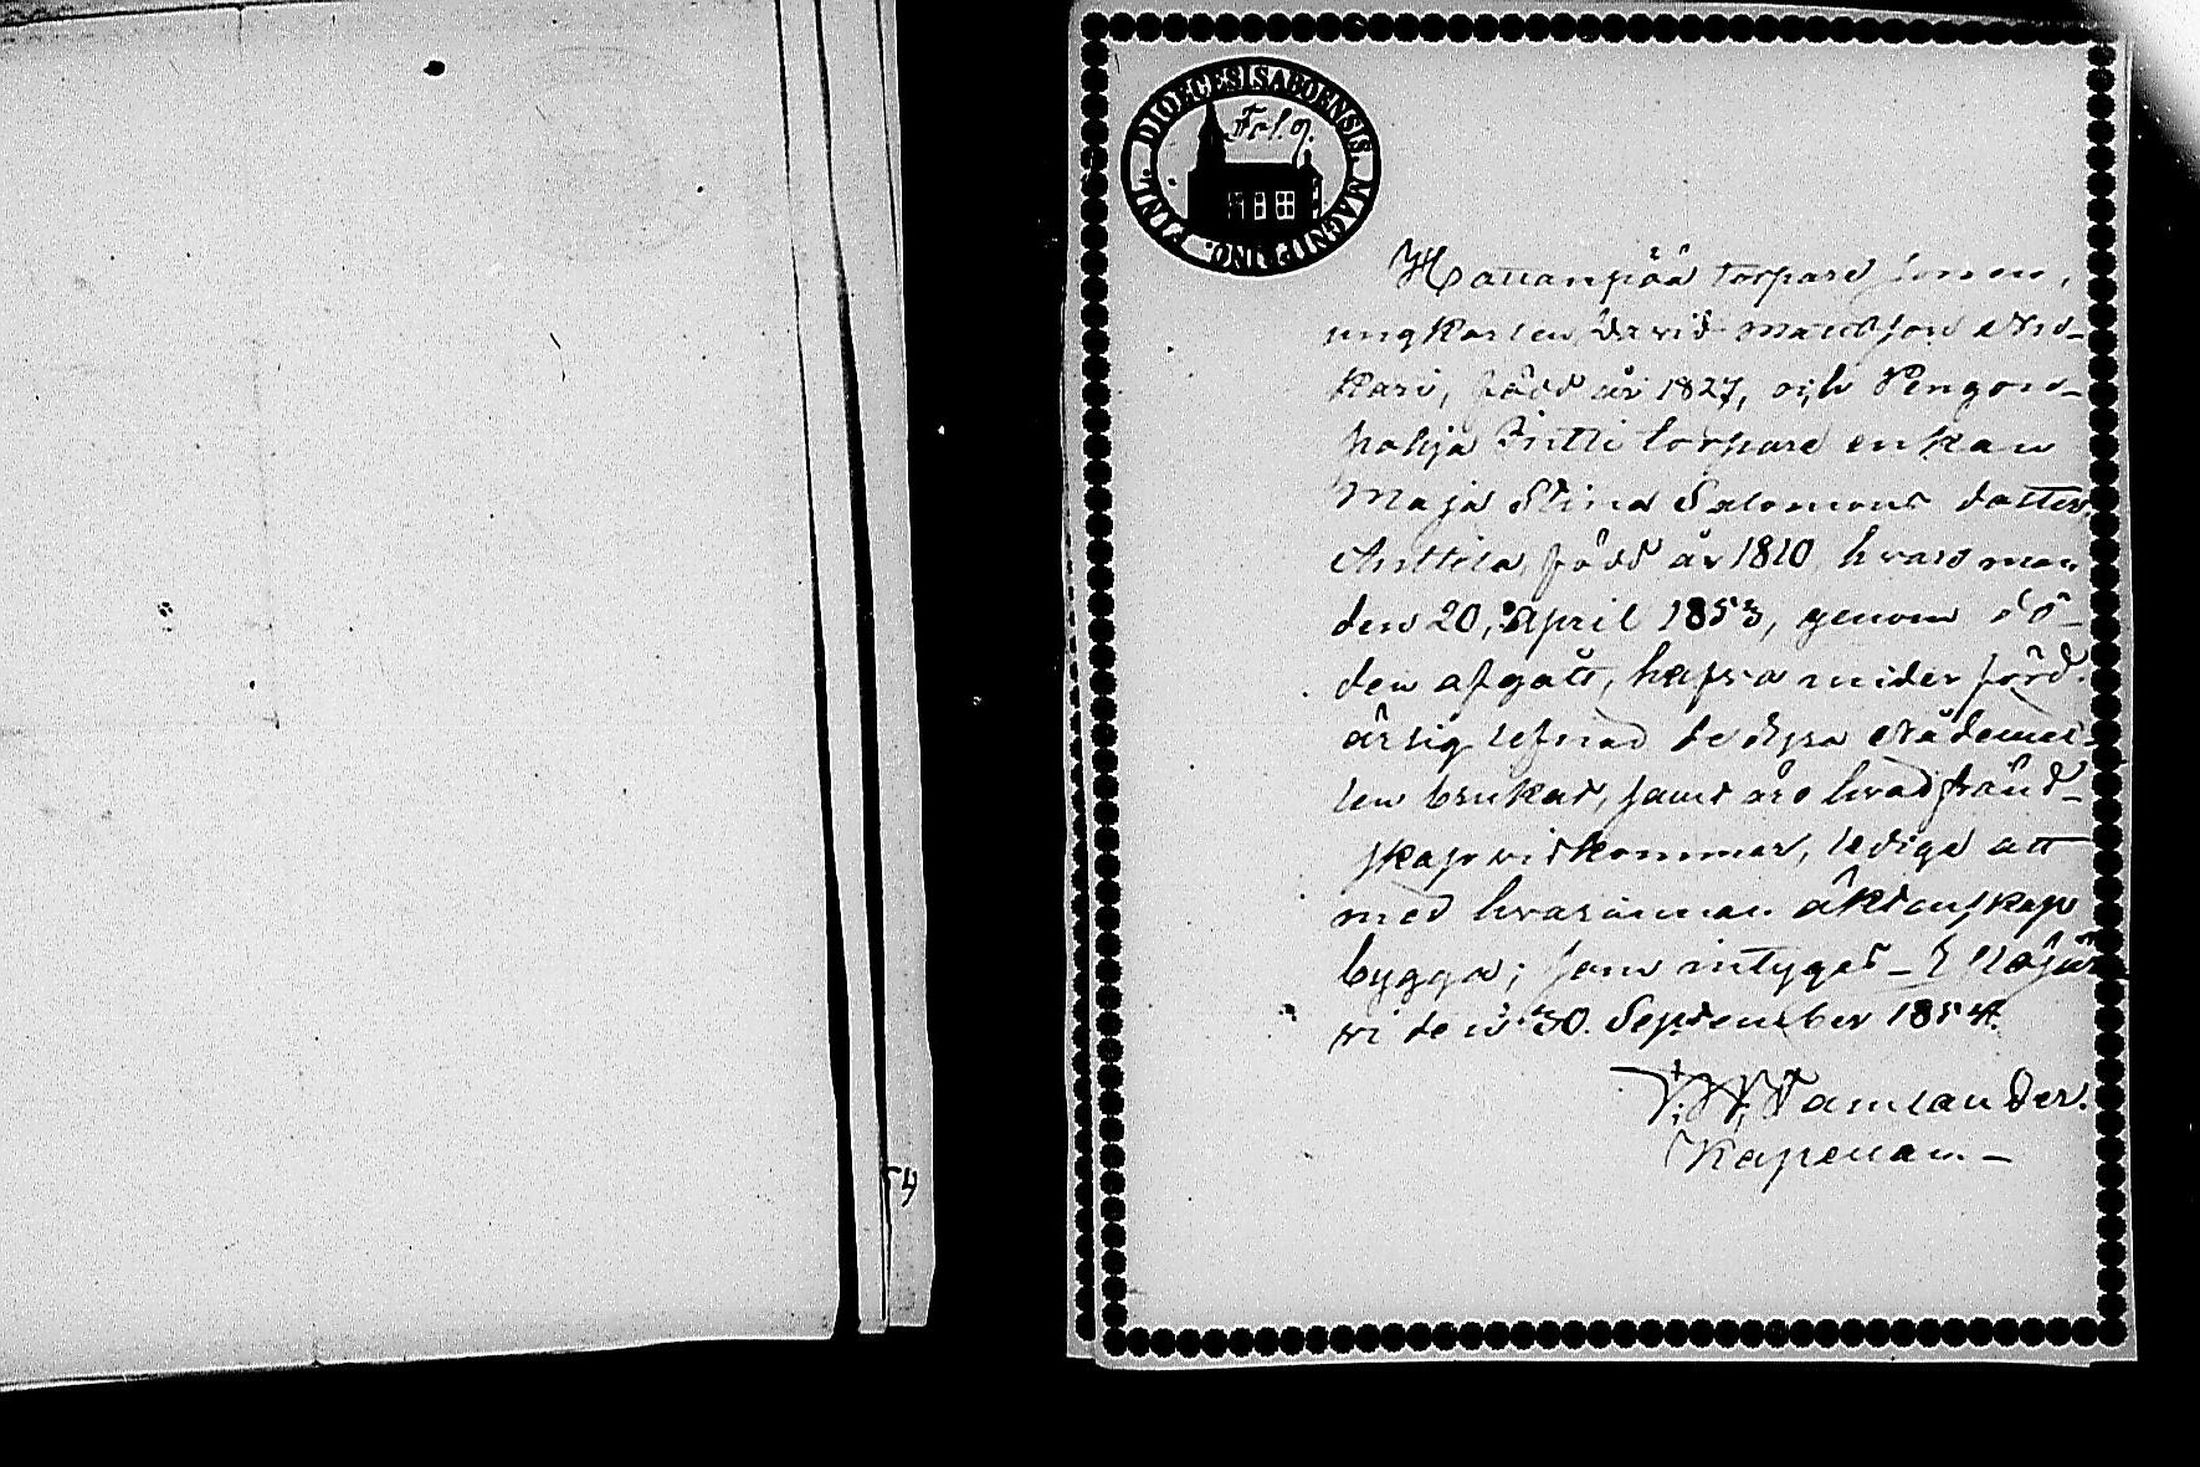 DIOECESIS ABOENSIS. MAGNI PRINC. FINL.
Fol. 9.
Hattanpää torpare sonen,
ungkarlen David Mattsson
kari, född år 1827, och Pengon-
pohja Intti torpare enkan
Maja Stina Salomons dotter
Anttila, född år 1810, hvars man
den 20, April 1853, genom dö-
den afgått, hafva under förd
ärlig lefnad de dyra Nådemed-
len brukat, samt äro hvad fränd-
skap vidkommer, lediga att
med hvarannan äktenskap
bygga; som intygas _
vi den 30. September 1854.
Tamlander.
Kapellan. _
54